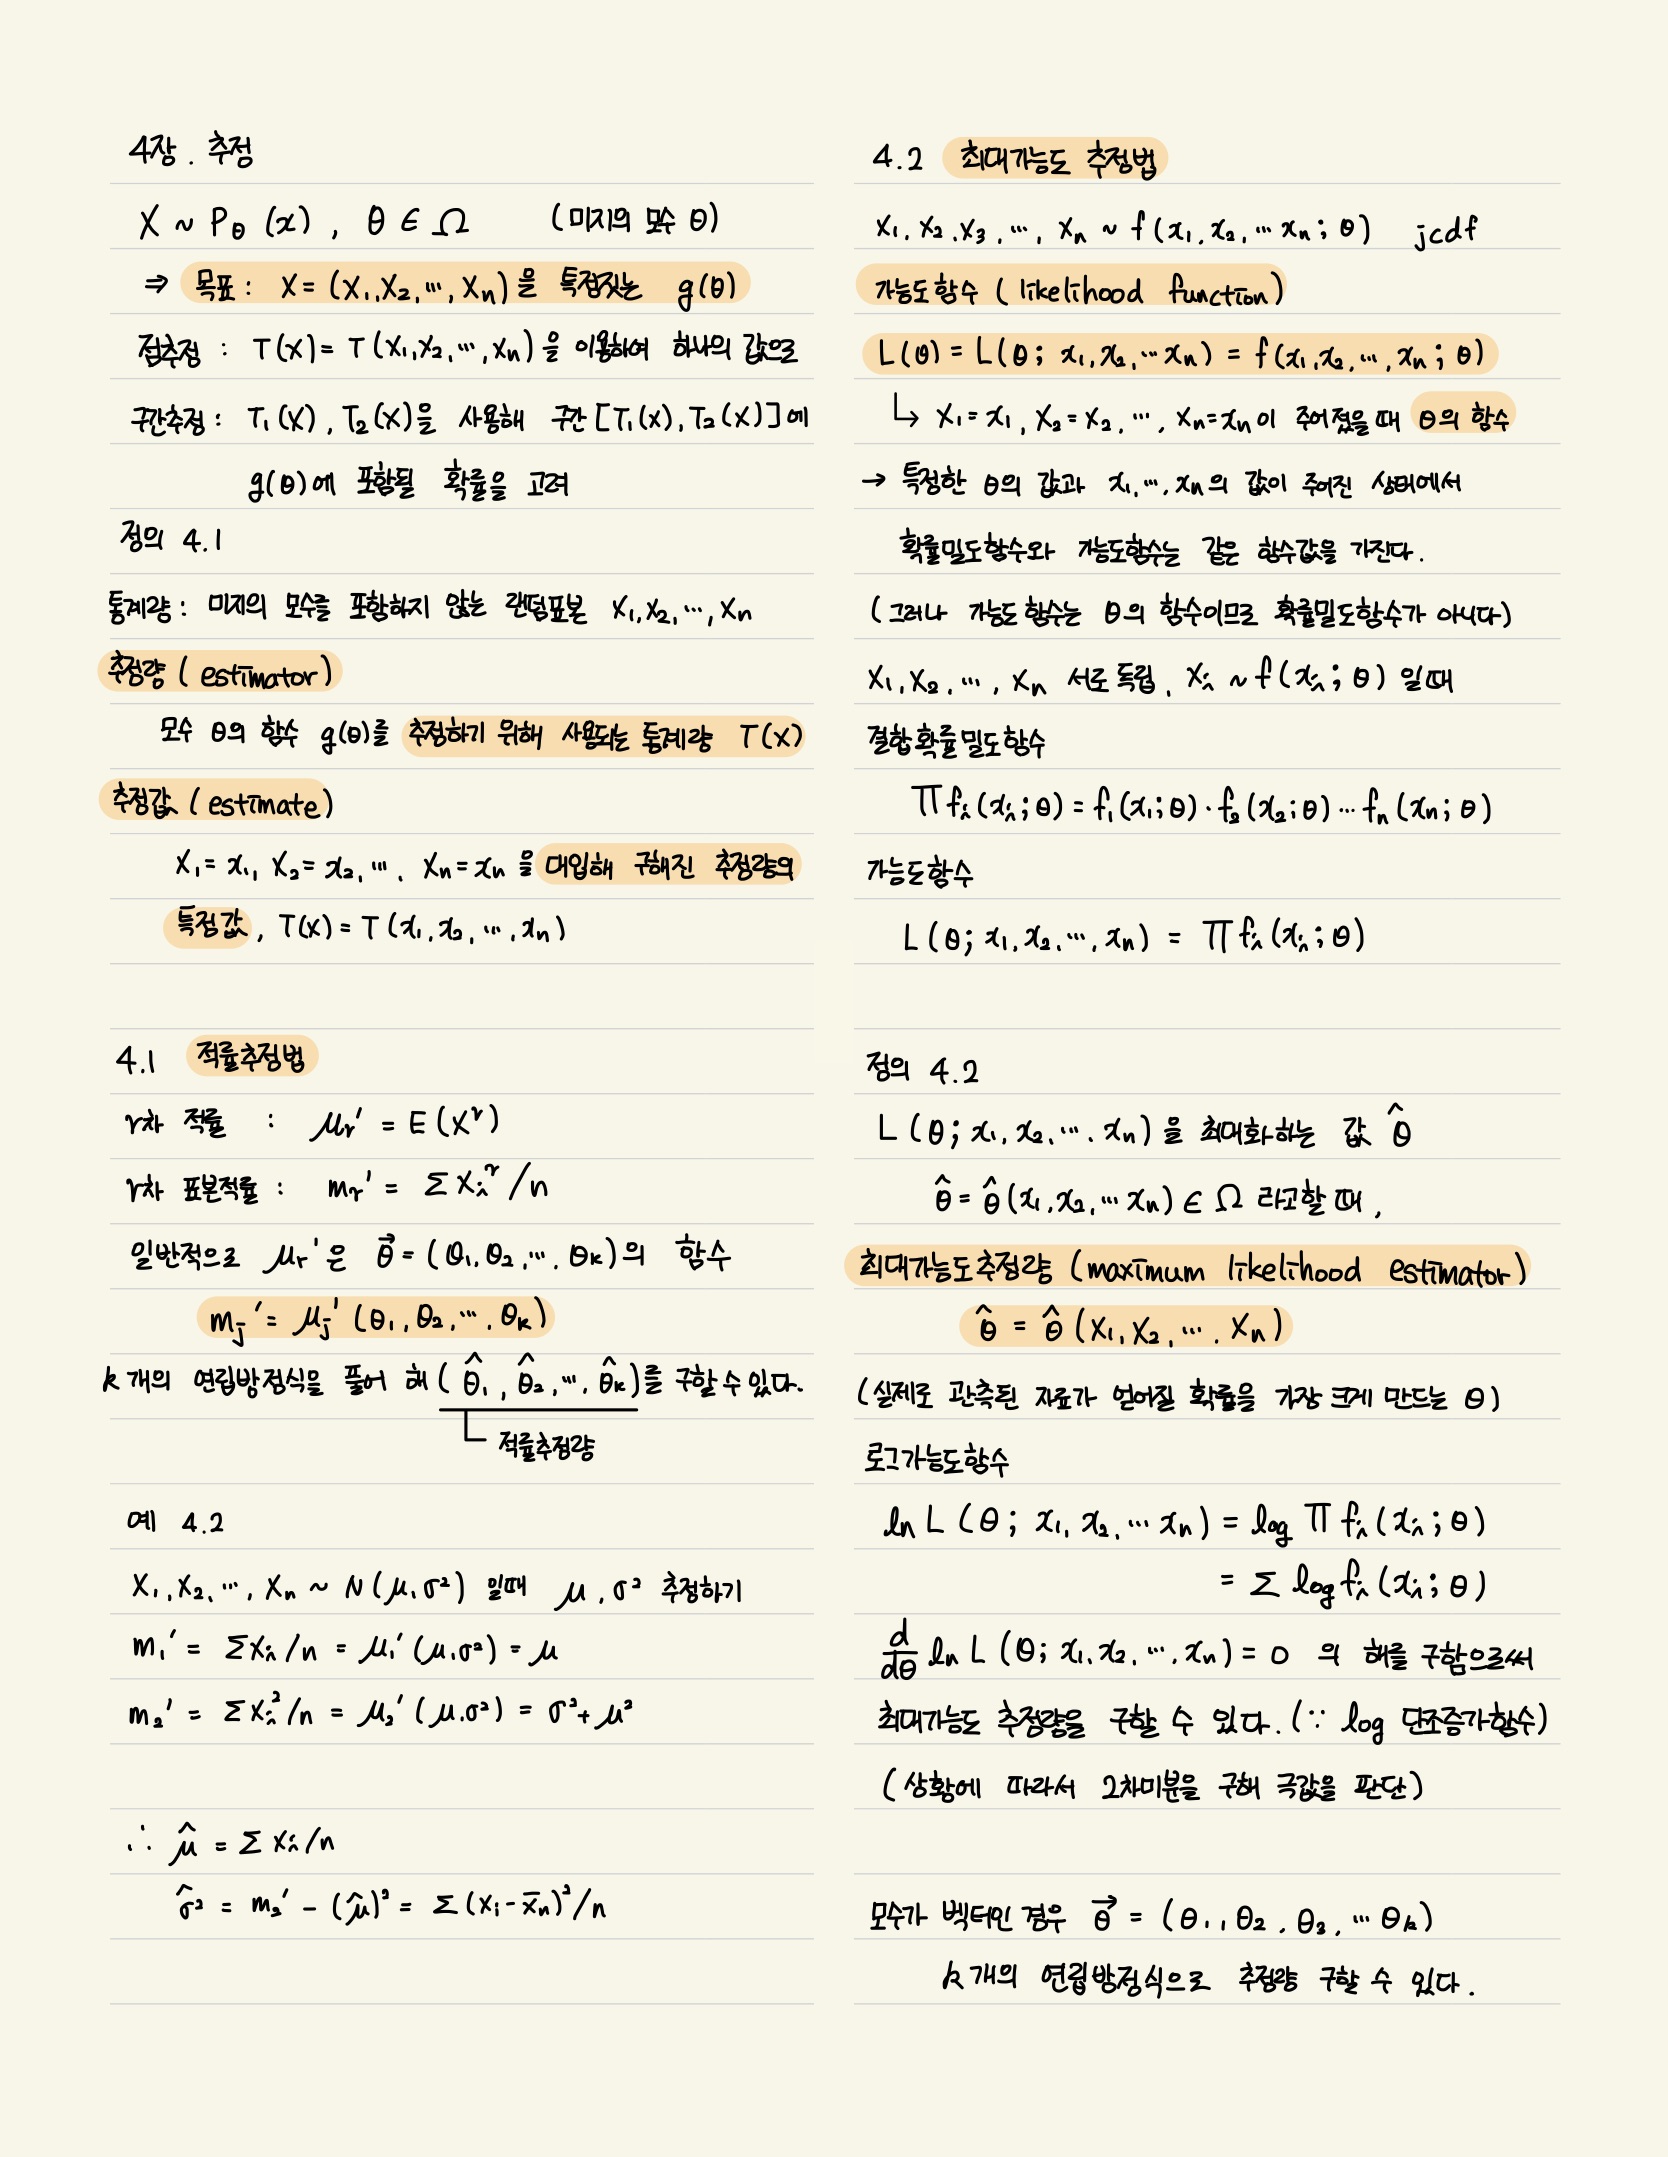 4장. 추정
X ~ P_θ (x), θ ∈ Ω (미지의 모수 θ)
⇒ 목표: X = (X₁, X₂, ···, Xn)을 특점짓는 g(θ)
점추정 : T(X) = T(X₁, X₂, ···, Xn)을 이용하여 하나의 값으로
구간추정: T₁(X), T₂(X)을 사용해 구간 [T₁(X), T₂(X)]에
g(θ)에 포함될 확률을 고려
정의 4.1
통계량: 미지의 모수를 포함하지 않는 랜덤표본 X₁, X₂, ···, Xn
추정량 (estimator)
모수 θ의 함수 g(θ)를 추정하기 위해 사용되는 통계량 T(X)
추정값 (estimate)
X₁ = x₁, X₂ = x₂, ···, Xn = xn 을 대입해 구해진 추정량의
특정값, T(X) = T(x₁, x₂, ···, xn)
4.1 적률추정법
r차 적률 : μr′ = E(X^r)
r차 표본적률 : mr′ = Σ Xi^r / n
일반적으로 μr′은 θ⃗ = (θ₁, θ₂, ···, θk)의 함수
mj′ = μj′ (θ₁, θ₂, ···, θk)
k개의 연립방정식을 풀어 해 (θ̂₁, θ̂₂, ···, θ̂k)를 구할 수 있다.
적률추정량
예 4.2
X₁, X₂, ···, Xn ~ N(μ, σ²) 일때 μ, σ² 추정하기
m₁′ = ΣXi/n = μ₁′(μ, σ²) = μ
m₂′ = ΣXi²/n = μ₂′(μ, σ²) = σ² + μ²
∴ μ̂ = Σ Xi/n
σ̂² = m₂′ − (μ̂)² = Σ(Xi − X̄n)²/n
4.2 최대가능도 추정법
X₁, X₂, X₃, ···, Xn ~ f(x₁, x₂, ··· xn ; θ) jcdf
가능도함수 (likelihood function)
L(θ) = L(θ; x₁, x₂, ··· xn) = f(x₁, x₂, ···, xn ; θ)
↳ X₁ = x₁, X₂ = x₂, ···, Xn = xn이 주어졌을 때 θ의 함수
→ 특정한 θ의 값과 x₁, ···, xn의 값이 주어진 상태에서
확률밀도함수와 가능도함수는 같은 함수값을 가진다.
(그러나 가능도함수는 θ의 함수이므로 확률밀도함수가 아니다)
X₁, X₂, ···, Xn 서로 독립, Xi ~ f(xi ; θ) 일 때
결합확률밀도함수
Π fi(xi ; θ) = f₁(x₁; θ) · f₂(x₂; θ) ··· fn(xn; θ)
가능도함수
L(θ; x₁, x₂, ···, xn) = Π fi(xi ; θ)
정의 4.2
L(θ; x₁, x₂, ···, xn)을 최대화하는 값 θ̂
θ̂ = θ̂(x₁, x₂, ··· xn) ∈ Ω 라고할 때,
최대가능도추정량 (maximum likelihood estimator)
θ̂ = θ̂ (X₁, X₂, ···, Xn)
(실제로 관측된 자료가 얻어질 확률을 가장 크게 만드는 θ)
로그가능도함수
ln L (θ; x₁, x₂, ··· xn) = log Π fi(xi ; θ)
= Σ log fi(xi ; θ)
d/dθ ln L (θ; x₁, x₂, ···, xn) = 0 의 해를 구함으로써
최대가능도 추정량을 구할 수 있다. (∵ log 단조증가함수)
(상황에 따라서 2차미분을 구해 극값을 판단)
모수가 벡터인 경우 θ⃗ = (θ₁, θ₂, θ₃, ··· θk)
k개의 연립방정식으로 추정량 구할 수 있다.